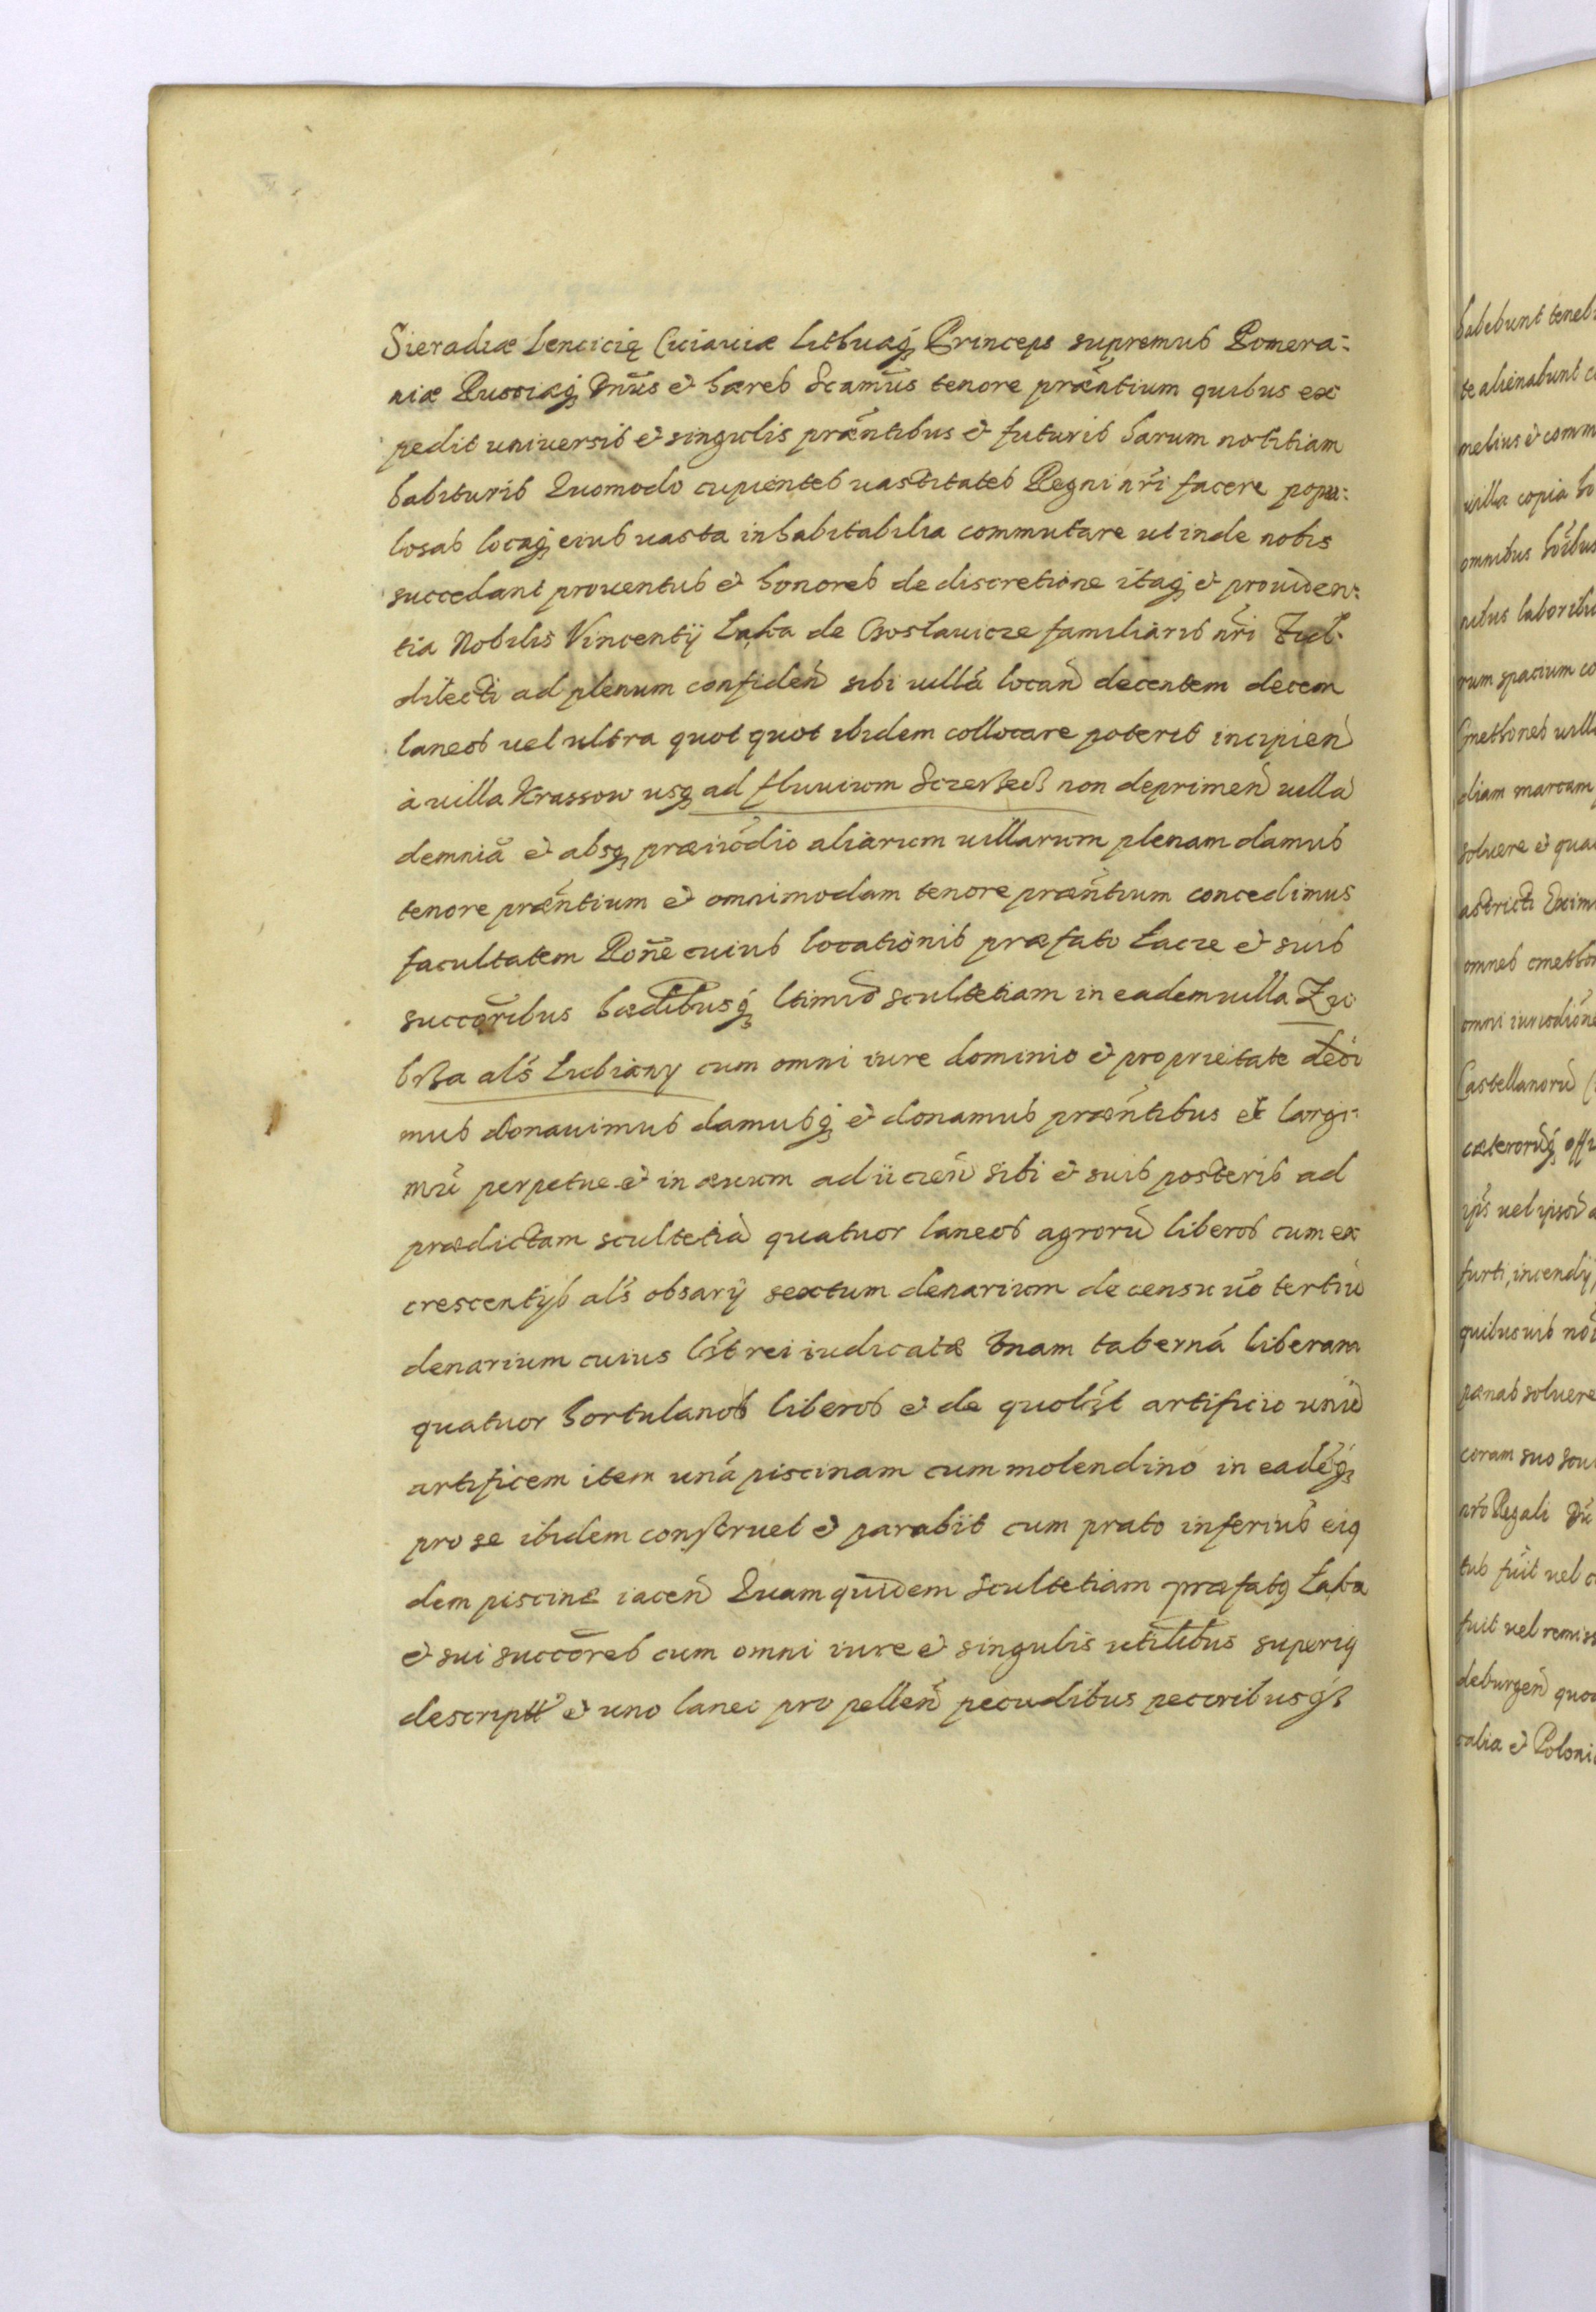 Sieradiæ Lencicię Cuiauiæ Lithuaq́ꝫ Princeps supremus Pomera:
niæ Russiæq́ꝫ Dn̄us et hæres Scam̄us tenore præn̄tium quibus ex
pedit uniuersis et singulis præn̄tibus et futuris harum notitiam
habituris Quomodo cupientes uastitates Regni nr̄i facere popu:
losas locaq́ꝫ eius uasta inhabitabilia commutare ut inde nobis
succedant prouentus et honores de discretione itaq́ꝫ et prouiden:
tia Nobilis Vincentÿ Łaka de Chosłauicze familiaris nr̄i
dilecti ad plenum confideñ sibi uillá locañ decentem decem
laneos uel ultra quot quot ibidem collocare poterit incipieñ
à uilla Krassow usqꝫ ad fluuium non deprimeñ uillá
demniā et absqꝫ præiudio aliarum uillarum plenam damus
tenore præn̄tium et omnimodam tenore præn̄tium concedimus
facultatem Ron̄e cuius locationis præfato Łacze et suis
succōribus hædibusq́ꝫ ltimis scultetiam in eadem uilla Zu
brza als̄ Lubiany cum omni iure dominio et proprietate dedi
mus donauimus damusq́ꝫ et donamus præn̄tibus et largi:
mū perpetue et in æuum adiicień sibi et suis posteris ad
prædictam scultetiā quatuor laneos agrorū liberos cum ex
crescentÿs als̄ obsarÿ sextum denarium de censu uō tertiū
denarium cuius lꝫt rei iudicatæ Vnam tabernā liberam
quatuor hortulanos liberos et de quolꝫt artificio unū
artificem item unā piscinam cum molendino in eadēqꝫ
pro se ibidem construet et parabit cum prato inferius eiꝰ
dem piscinæ iaceñ Quam quidem Scultetiam præfatꝰ Łaka
et sui succōres cum omni iure et singulis utilitibus superiꝰ
descriptt et uno laneo pro pelleñ pecudibus pecoribusq́ꝫ
habebunt teneb
te alienabunt c
melius et comm
uilla copia ho
omnibus hōibus
nibus laborib
rum spacium co
Cmethones uill
diam marcam
soluere et qua
astricti Exim
omnes cmetho
omni iurisdione
Castellanorū
cæterorūq́ꝫ off
ips̄ uel ipsorū a
furti, incendÿ,
quibusuis no
pænas soluere
coram suo scu
nr̄o Regali
tus fūit uel c
fuit uel remiss
deburgeñ quo
calia et Poloni